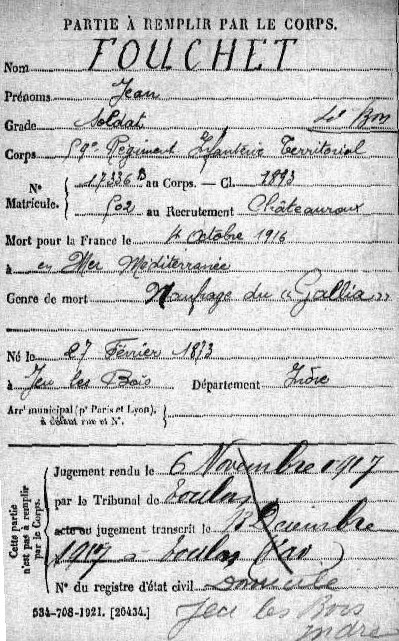 PARTIE À REMPLIR PAR LE CORPS.
Nom FOUCHET
Prénoms Jean
Grade Soldat
Corps 59e Régiment Infanterie Territorial
N° Matricule. 17336 au Corps. — Cl. 1893
502 au Recrutement Châteauroux
Mort pour la France le 4 Octobre 1916
à en Mer Méditerranée
Genre de mort Naufrage du « Gallia »
Né le 27 Février 1873
à Jeu les Bois Département Indre
Arrt municipal (pr Paris et Lyon), à défaut rue et N°.
Cette partie n'est pas à remplir par le Corps.
Jugement rendu le 6 Novembre 1917
par le Tribunal de Toulon
acte ou jugement transcrit le Décembre
1917 à Toulon Var
N° du registre d'état civil Domicile
Jeu les Bois
Indre
534-708-1921. [26434.]